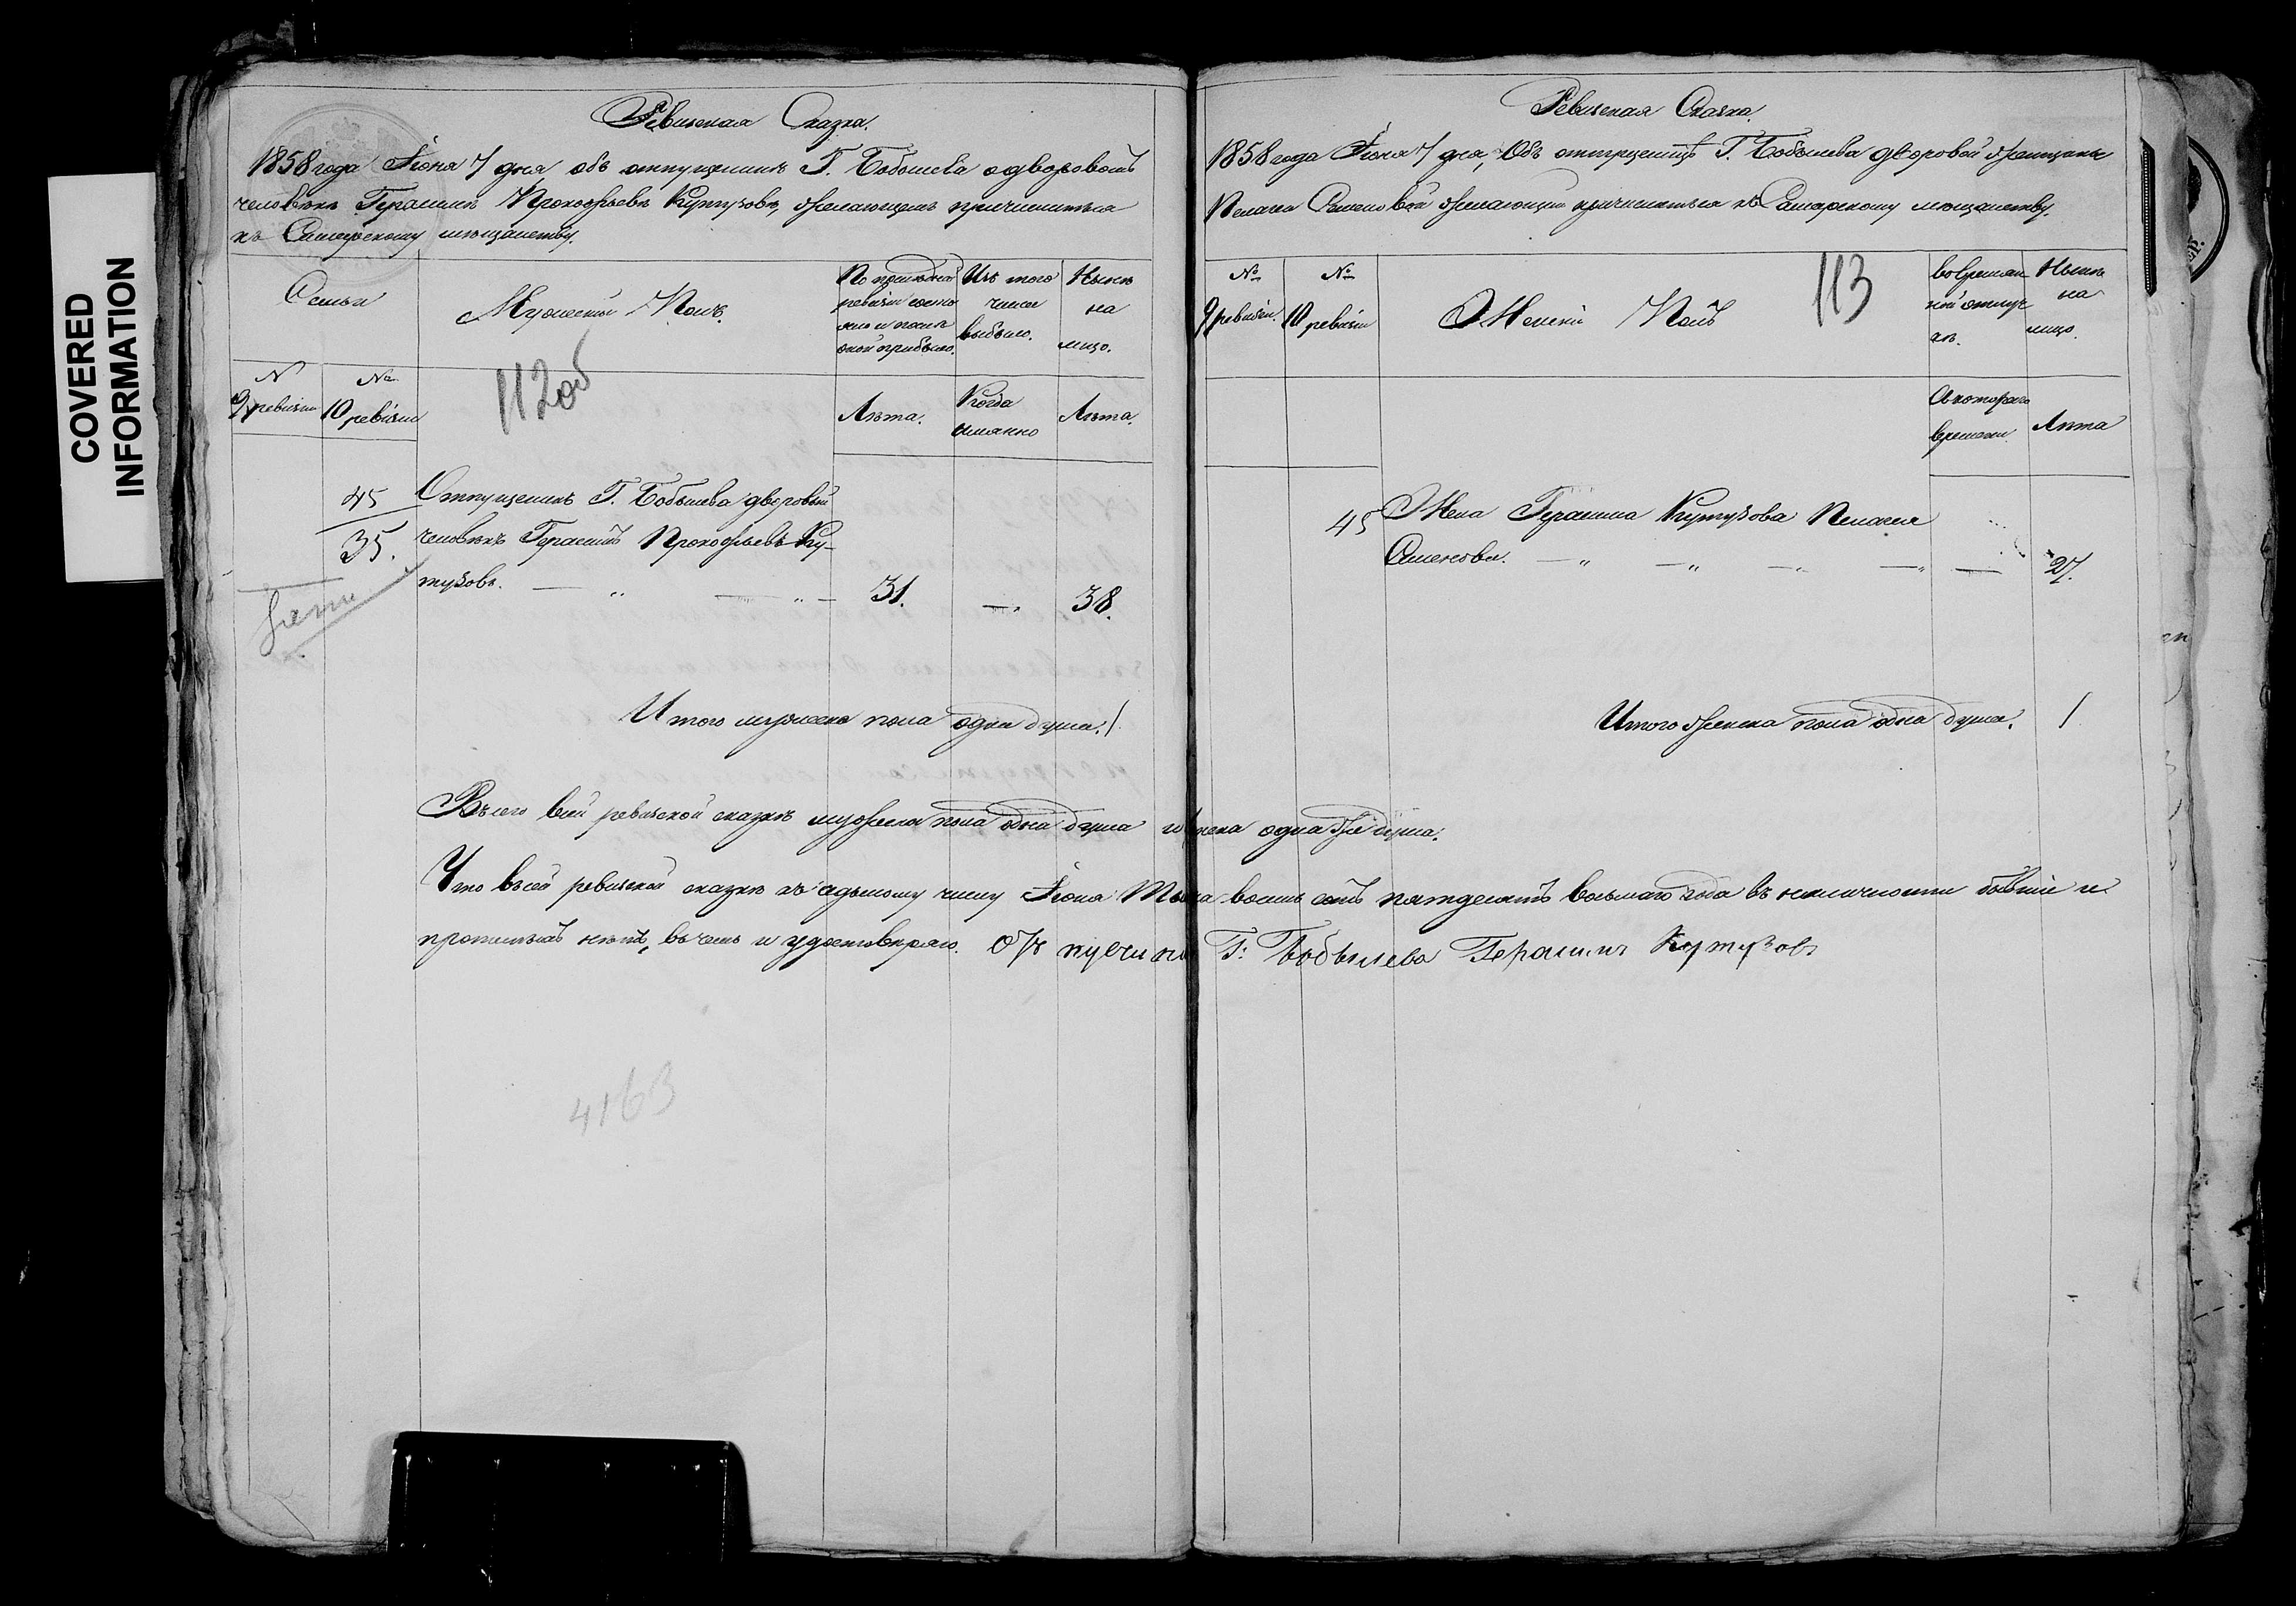 COVERED
INFORMATION
Ревизская Сказка.
1858 года Іюня 7 дня, объ отпущенникѣ Г. Бобылева о дворовомъ
человѣкѣ Герасимѣ Прокофьевѣ Кутузовѣ, желающемъ причислиться
къ Самарскому мѣщанству.
Семьи
Мужескій Полъ.
По послѣдней
ревизіи состо
яло и послѣ
оной прибыло.
Изъ того
числа
выбыло.
Нынѣ
на
лицо.
№
9 ревизіи
№
10 ревизіи
112об
Лѣта.
Когда
имянно
Лѣта.
45
35.
Отпущенникъ Г. Бобылева дворовый
человѣкъ Герасимъ Прокофьевъ Ку-
тузовъ. — „ — „ — 31. —„ 38.
Итого мужеска пола одна душа. 1.
Ревизская Сказка.
1858 года Іюня 7 дня, Объ отпущенницѣ Г. Бобылева дворовой женщинѣ
Пелагеи Семеновой желающей причислиться къ Самарскому мещанству.
№
9 ревизіи.
№
10 ревизіи
Женскій Полъ
113
во времян
ной отлуч
кѣ.
Нынѣ
на
лицо.
Съ котораго
времени
Лѣта
45 Жена Герасима Кутузова Пелагея
Семенова. — „ — „ — „ — „ — 27.
Итого женска пола одна душа. 1
Всего в сей ревизской сказкѣ мужеска пола одна душа и женска одна же душа.
Что въ сей ревизской сказкѣ къ седьмому числу Іюня Тысяча восемь сотъ пятдесятъ восьмаго года въ неличности бывшіе и
прописныхъ нѣтъ, въ чемъ и удостовѣряю. Г: Бобылева Герасимъ Кутузовъ
4163